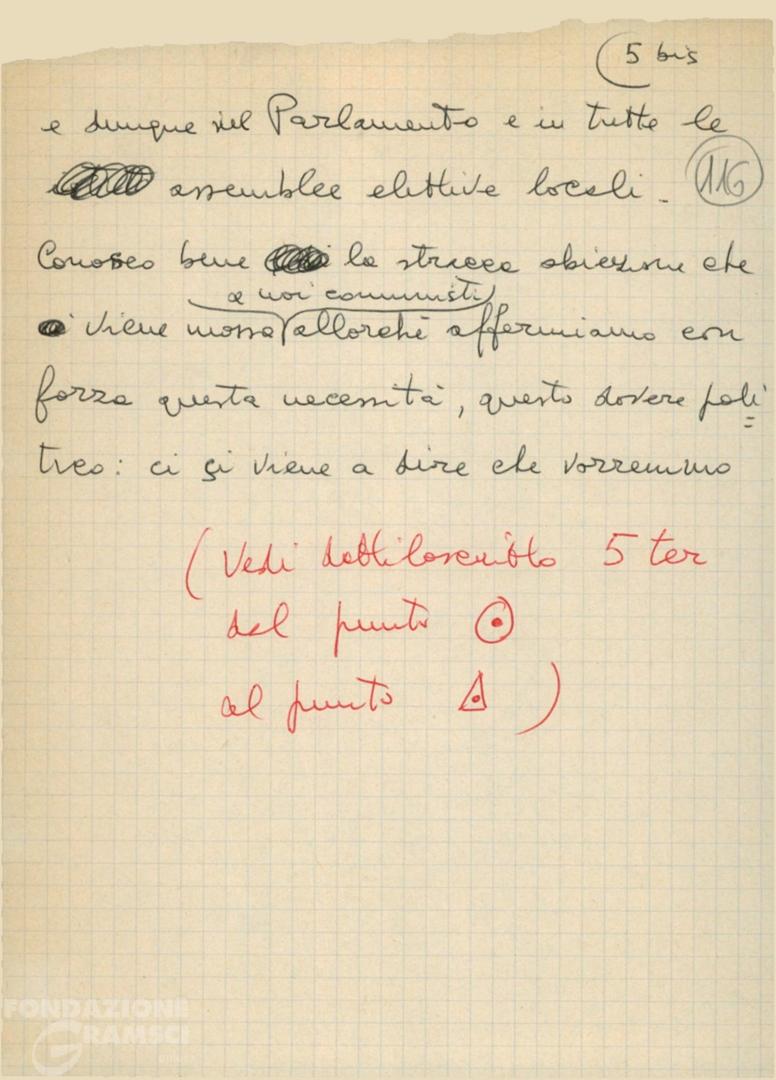 5 bis
e dunque nel Parlamento e in tutte le
assemblee elettive locali.
116
Conosco bene la stracca obiezione che
a noi comunisti
viene mossa allorché affermiamo con
forza questa necessità, questo dovere poli=
tico: ci si viene a dire che vorremmo
(Vedi dattiloscritto 5 ter
dal punto ⊙
al punto ◬)
FONDAZIONE
GRAMSCI